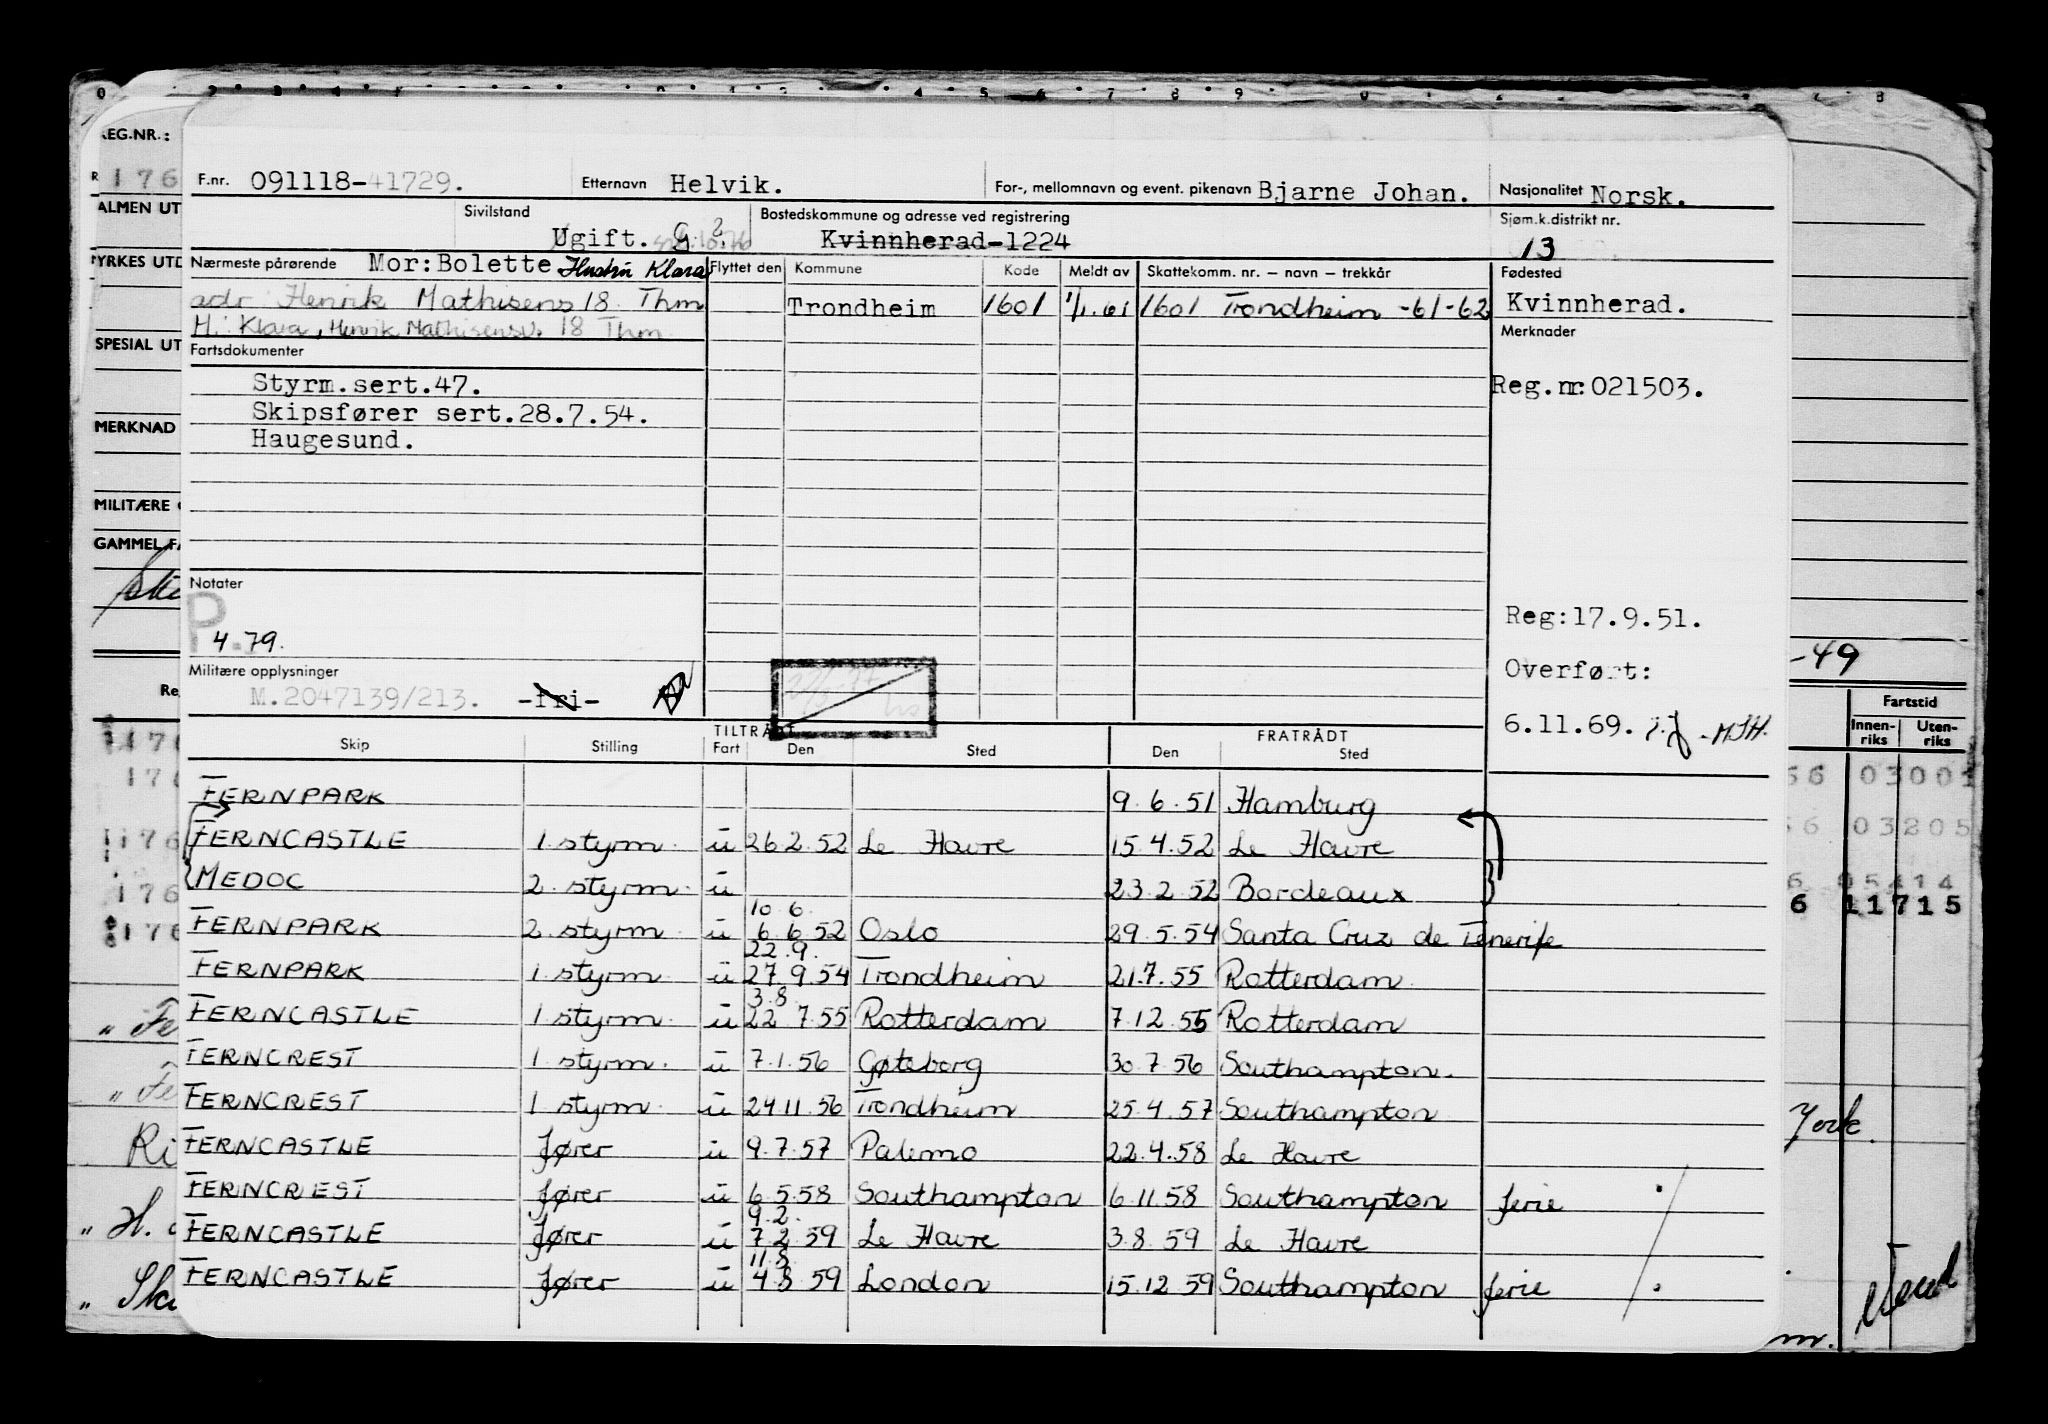 REG.NR.:
176
ALMEN UT
YRKES UTD
SPESIAL UT
MERKNAD
MILITÆRE
GAMMEL FA
F.nr. 091118-41729. Etternavn Helvik. For-, mellomnavn og event. pikenavn Bjarne Johan. Nasjonalitet Norsk.
Sivilstand Ugift. G Bostedskommune og adresse ved registrering Kvinnherad-1224 Sjøm.k.distrikt nr. 13
Nærmeste pårørende Mor:Bolette Hustru Klara Flyttet den Kommune Kode Meldt av Skattekomm. nr. – navn – trekkår Fødested
adr Henrik Mathisens 18 Thm Trondheim 1601 1/1.61 1601 Trondheim -61-62 Kvinnherad.
H. Klara, Henrik Mathisensv. 18 Thm Merknader
Fartsdokumenter
Styrm.sert.47. Reg.nr:021503.
Skipsfører sert.28.7.54.
Haugesund.
Notater
P
4.79.
Reg:17.9.51.
Militære opplysninger Overført:
M.2047139/213. -Fri- 6.11.69.
-49
TILTRÅDT FRATRÅDT
Skip Stilling Fart Den Sted Den Sted
Fartstid
Innen-riks Uten-riks
FERNPARK 9.6.51 Hamburg
FERNCASTLE 1 styrm. ü 26.2.52 Le Havre 15.4.52 Le Havre
MEDOC 2. styrm. ü 23.2.52 Bordeaux
10.6.
FERNPARK 2. styrm. ü 6.6.52 Oslo 29.5.54 Santa Cruz de Tenerife
22.9.
FERNPARK 1. styrm. ü 27.9.54 Trondheim 21.7.55 Rotterdam
3.8.
FERNCASTLE 1 styrm. ü 22.7.55 Rotterdam 7.12.55 Rotterdam
FERNCREST 1 styrm. ü 7.1.56 Gøteborg 30.7.56 Southampton.
FERNCREST 1 styrm. ü 24.11.56 Trondheim 25.4.57 Southampton
FERNCASTLE fører ü 9.7.57 Palermo 22.4.58 Le Havre
FERNCREST fører ü 6.5.58 Southampton 6.11.58 Southampton ferie
9.2.
FERNCASTLE fører ü 7.2.59 Le Havre 3.8.59 Le Havre
11.8.
FERNCASTLE fører ü 4.8.59 London 15.12.59 Southampton ferie
56 03001
56 03205
6 05414
6 11715
York.